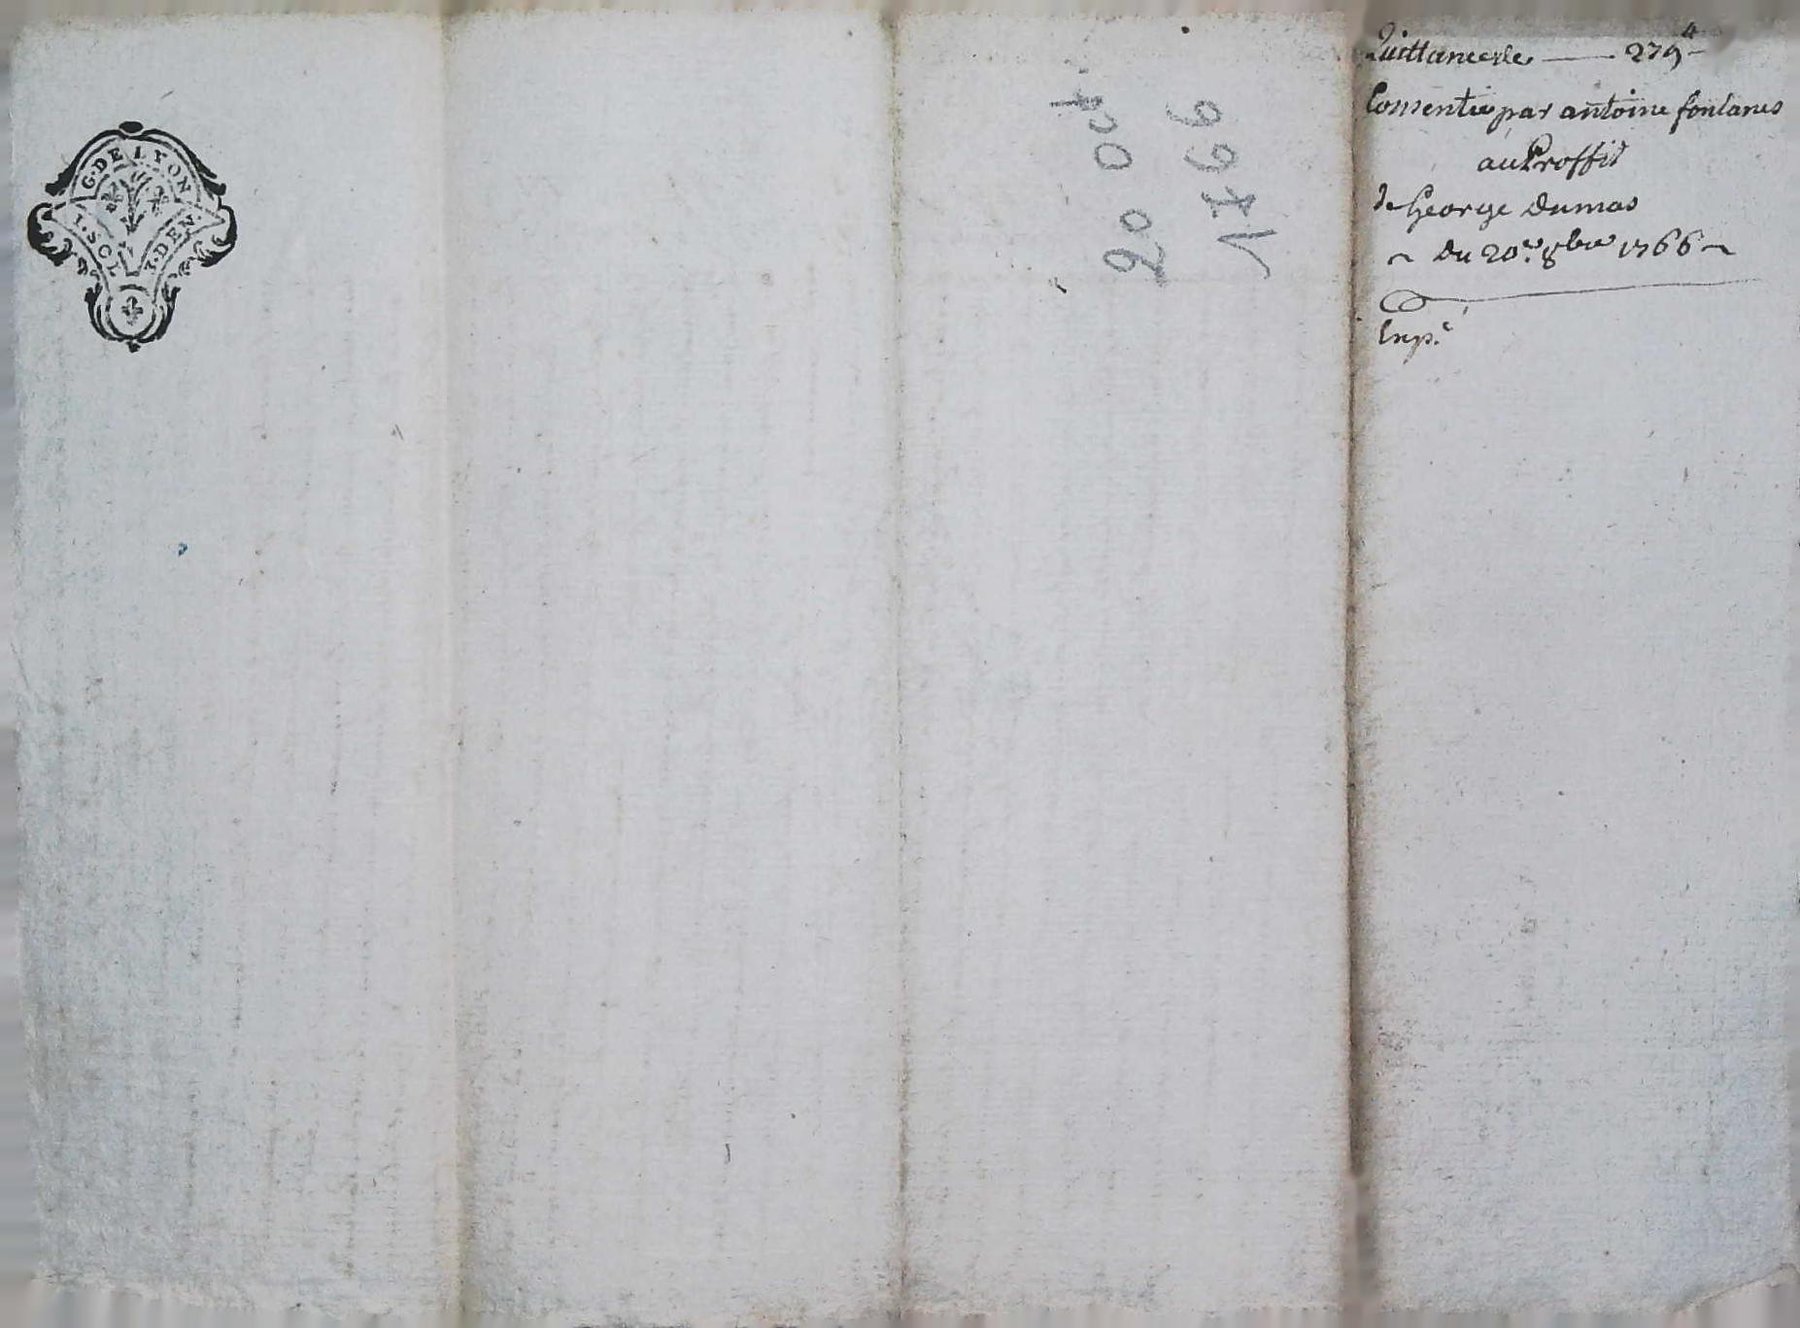 G. DE LYON
1. SOL 3. DEN.
20 Oct
1766
Quittance de — 279#
Consentie par antoine fontanes
au Proffit
de George Dumas
~ du 20e. 8bre 1766 ~